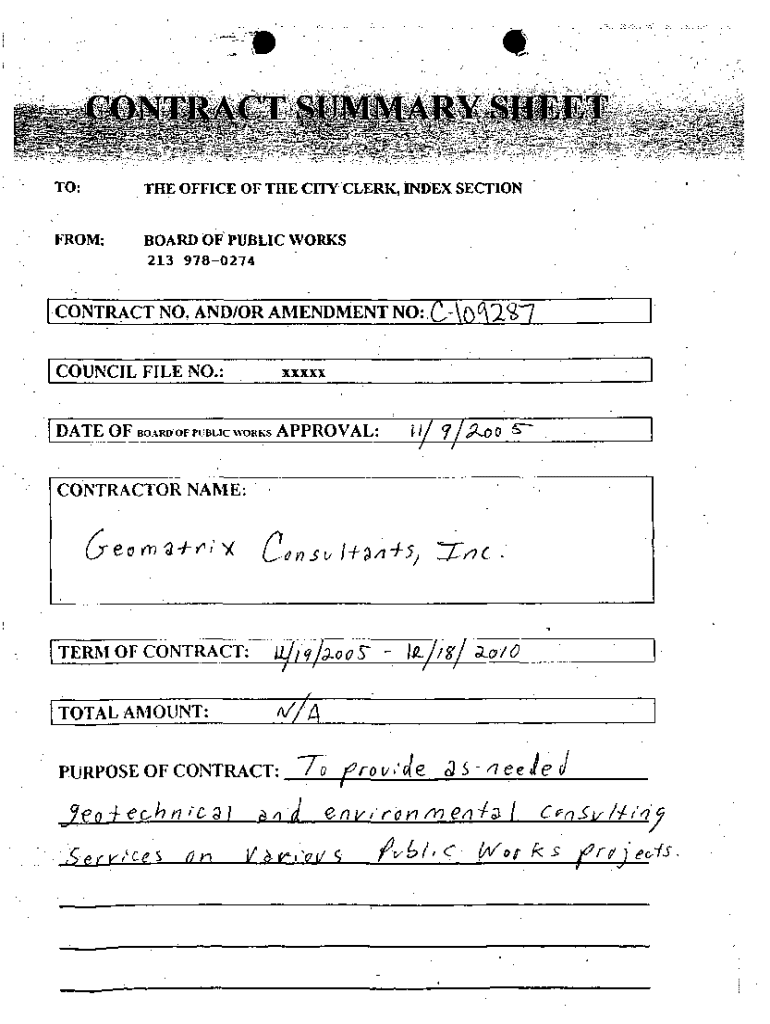 CONTRACT SUMMARY SHEET
TO: THE OFFICE OF THE CITY CLERK, INDEX SECTION
FROM: BOARD OF PUBLIC WORKS
213 978-0274
CONTRACT NO. AND/OR AMENDMENT NO: C-109287
COUNCIL FILE NO.: xxxxx
DATE OF BOARD OF PUBLIC WORKS APPROVAL: 11/9/2005
CONTRACTOR NAME:
Geomatrix Consultants, Inc.
TERM OF CONTRACT: 12/19/2005 - 12/18/2010
TOTAL AMOUNT: N/A
PURPOSE OF CONTRACT: To provide as-needed
geotechnical and environmental consulting
Services on Various Public Works projects.